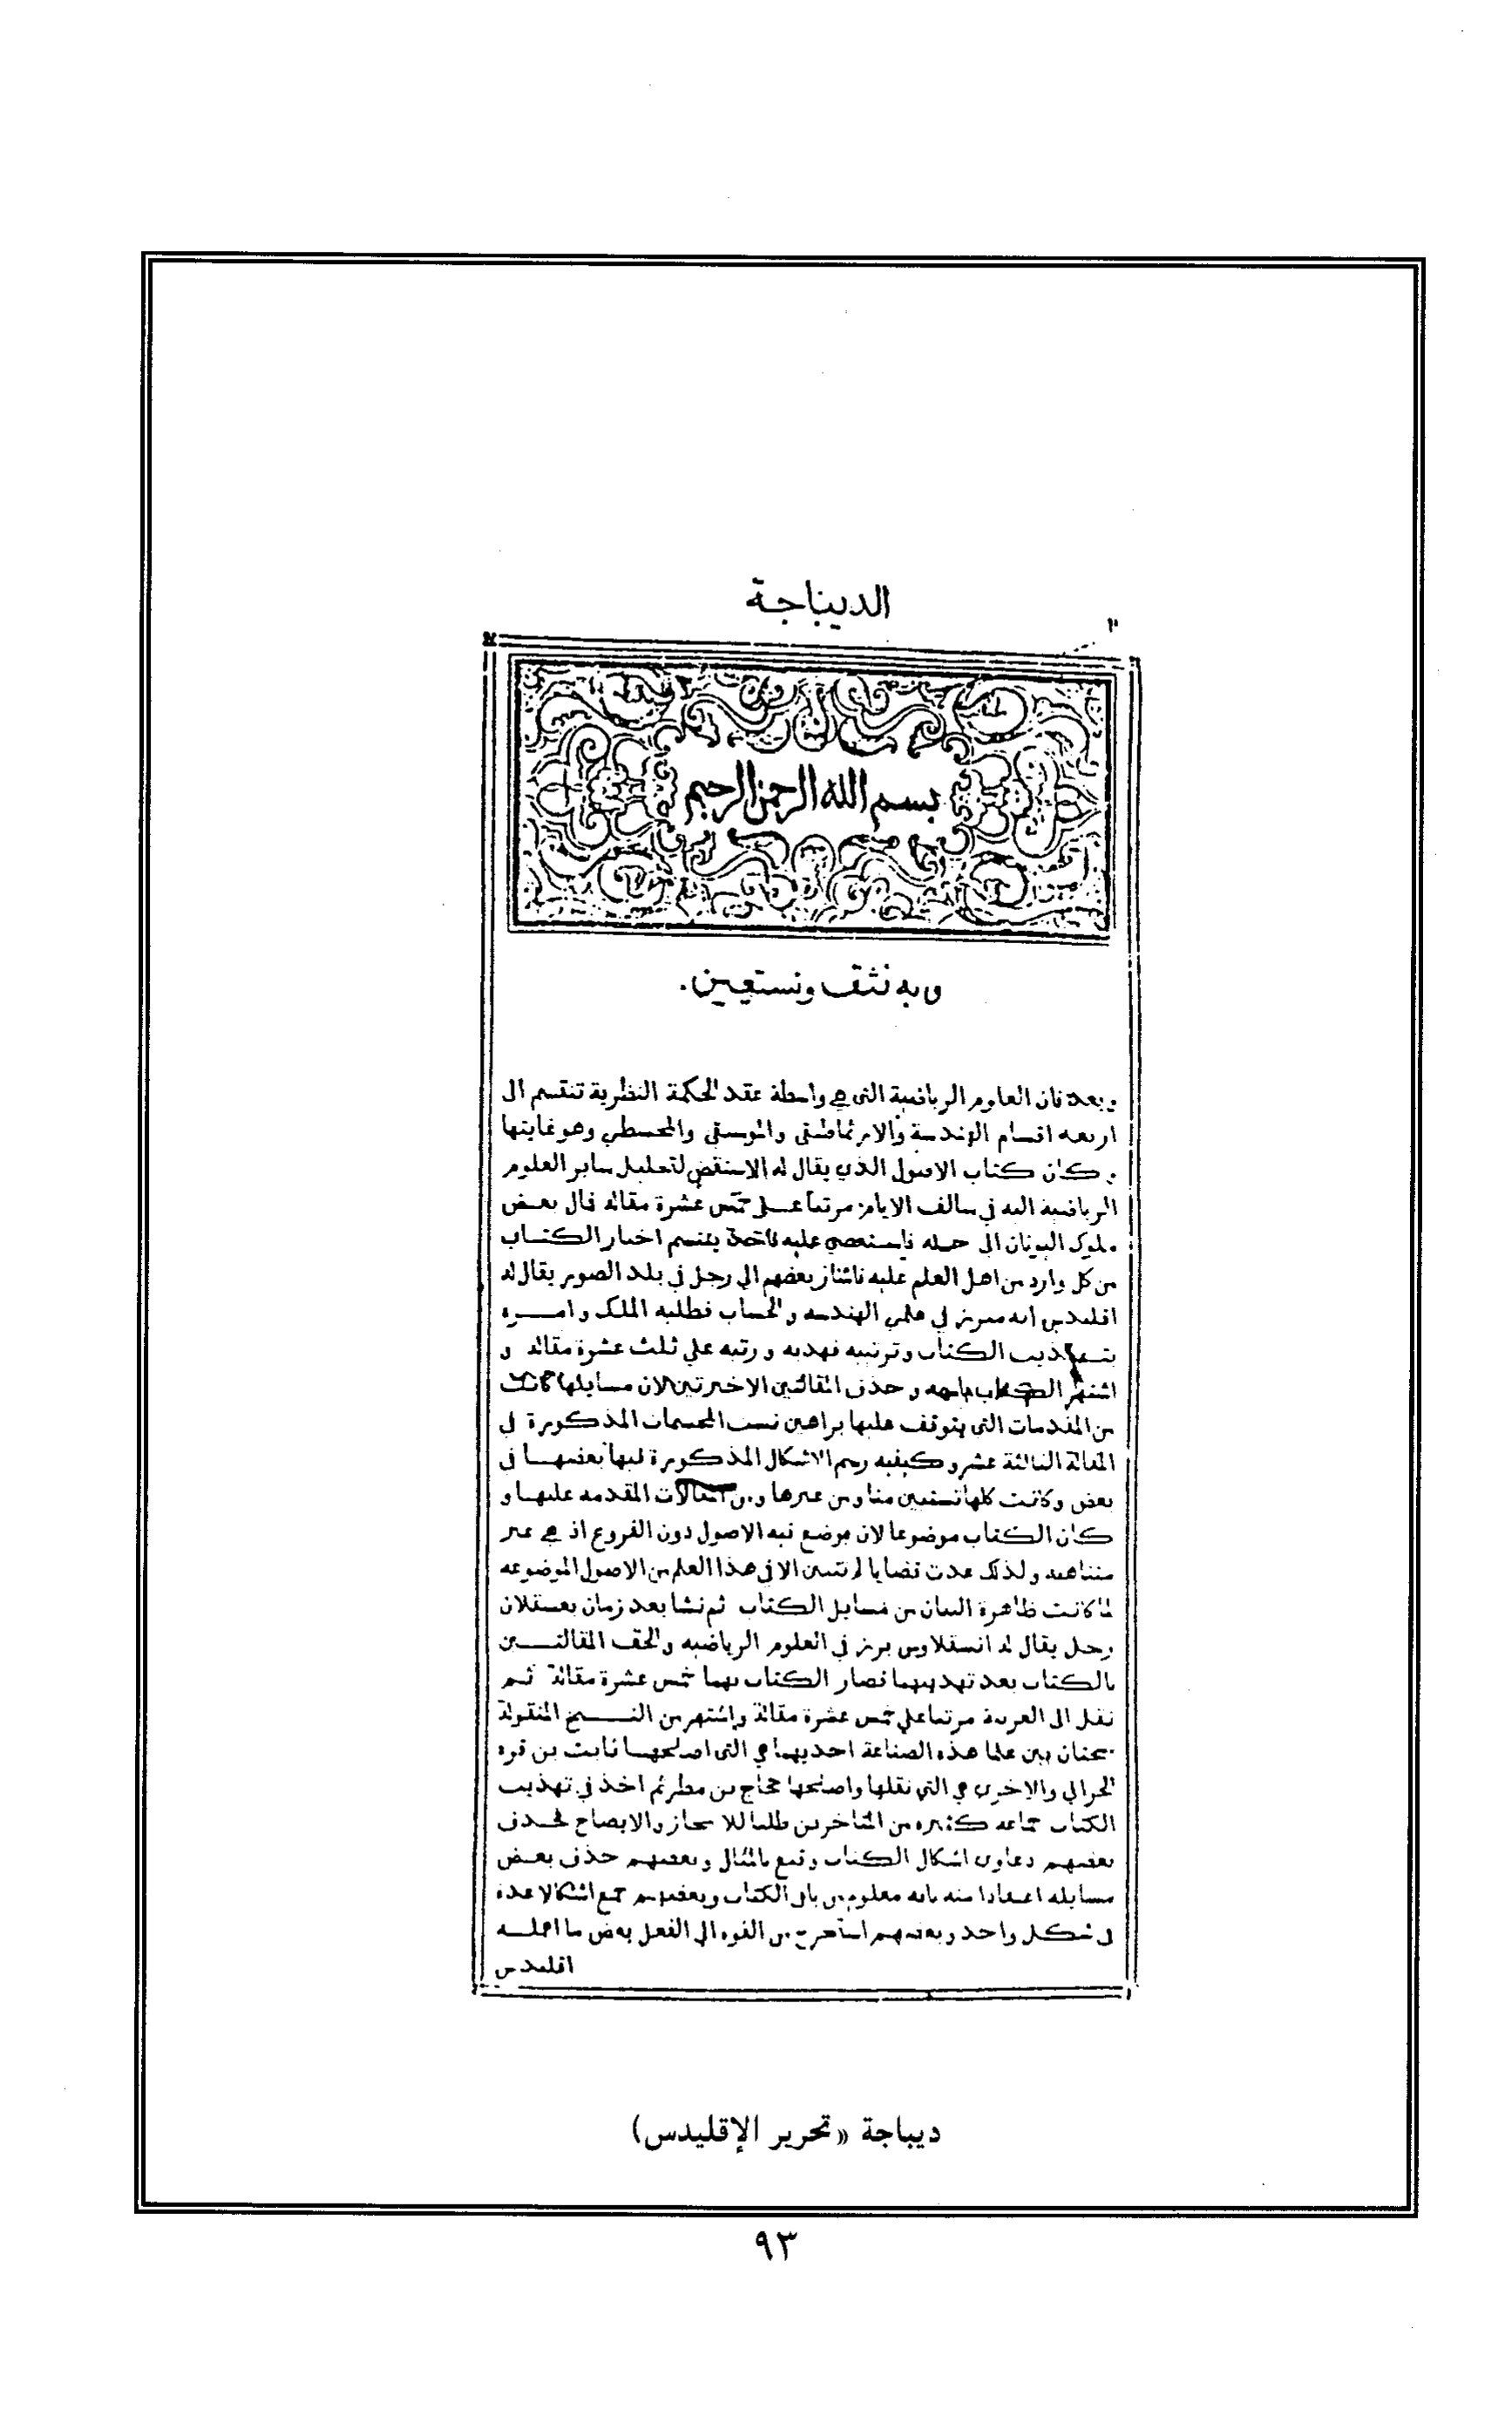 الديباجة
٢
بسم الله الرحمن الرحيم
وبه نثق ونستعين.
وبعد فان العلوم الرياضية التي هي واسطة عقد الحكمة النظرية تنقسم الى
اربعه اقسام الهندسة والارثماطيقى والموسيقى والمجسطي وهو غايتها
وكان كتاب الاصول الذي يقال له الاستقص لتحليل ساير العلوم
الرياضية اليه في سالف الايام مرتبا على خمس عشرة مقاله فال بعض
ملوك اليونان الى حله فاستعصي عليه فاخذ يتنسم اخبار الكتاب
من كل وارد من اهل العلم عليه فاشار بعضهم الى رجل في بلد الصور يقال له
اقليدس انه مبرز في علمي الهندسه والحساب فطلبه الملك وامره
بتهذيب الكتاب وترتيبه فهذبه ورتبه علي ثلث عشرة مقاله و
اشتهر الكتاب باسمه وحذف المقالتين الاخيرتين لان مسايلها كانت
من المقدمات التي يتوقف عليها براهين نسب المجسمات المذكورة في
المقالة الثالثة عشر وكيفيه رسم الاشكال المذكورة فيها بعضها في
بعض وكانت كلها تستبين منا ومن غيرها ومن المقالات المقدمه عليها و
كان الكتاب موضوعا لان يوضع فيه الاصول دون الفروع اذ هي غير
متناهيه ولذلك عدت قضايا لم تتبين الا في هذا العلم من الاصول الموضوعه
لما كانت ظاهرة البيان من مسايل الكتاب ثم نشا بعد زمان بعسقلان
رجل يقال له انسقلاوس برز في العلوم الرياضيه والحق المقالتين
بالكتاب بعد تهذيبهما فصار الكتاب بهما خمس عشرة مقالة ثم
نقل الى العربية مرتبا علي خمس عشرة مقالة واشتهر من النسخ المنقولة
نسختان بين علما هذه الصناعة احديهما هي التي اصلحها ثابت بن قره
الحراني والاخرى هي التي نقلها واصلحها حجاج بن مطر ثم اخذ في تهذيب
الكتاب جماعه كثيره من المتاخرين طلبا للايجاز والايضاح فحذف
بعضهم دعاوى اشكال الكتاب وقنع بالمثال وبعضهم حذف بعض
مسايله اعتقادا منه بانه معلوم من باقي الكتاب وبعضهم جمع اشكالا عدة
في شكل واحد وبعضهم استخرج من القوه الى الفعل بعض ما اهمله
اقليدس
ديباجة «تحرير الإقليدس)
٩٣